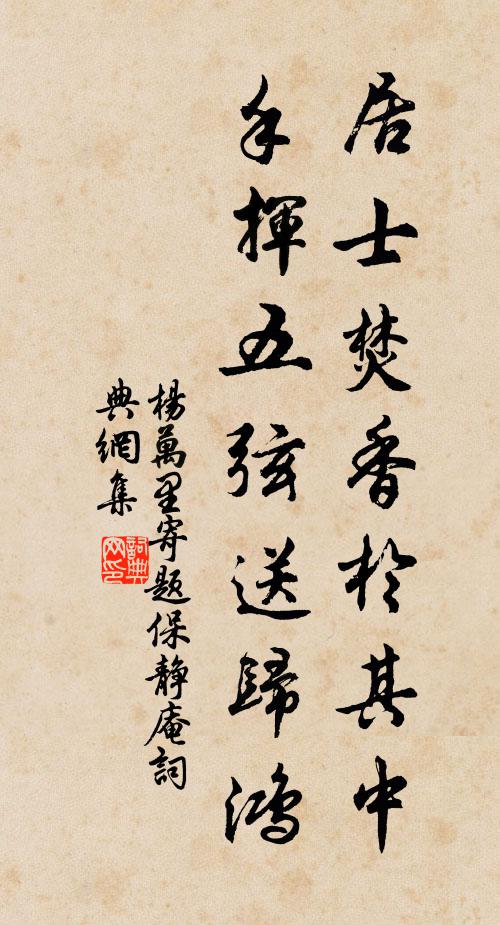 居士焚香於其中
手揮五弦送歸鴻
楊萬里寄題保靜庵詞
典網集
詞典
网印